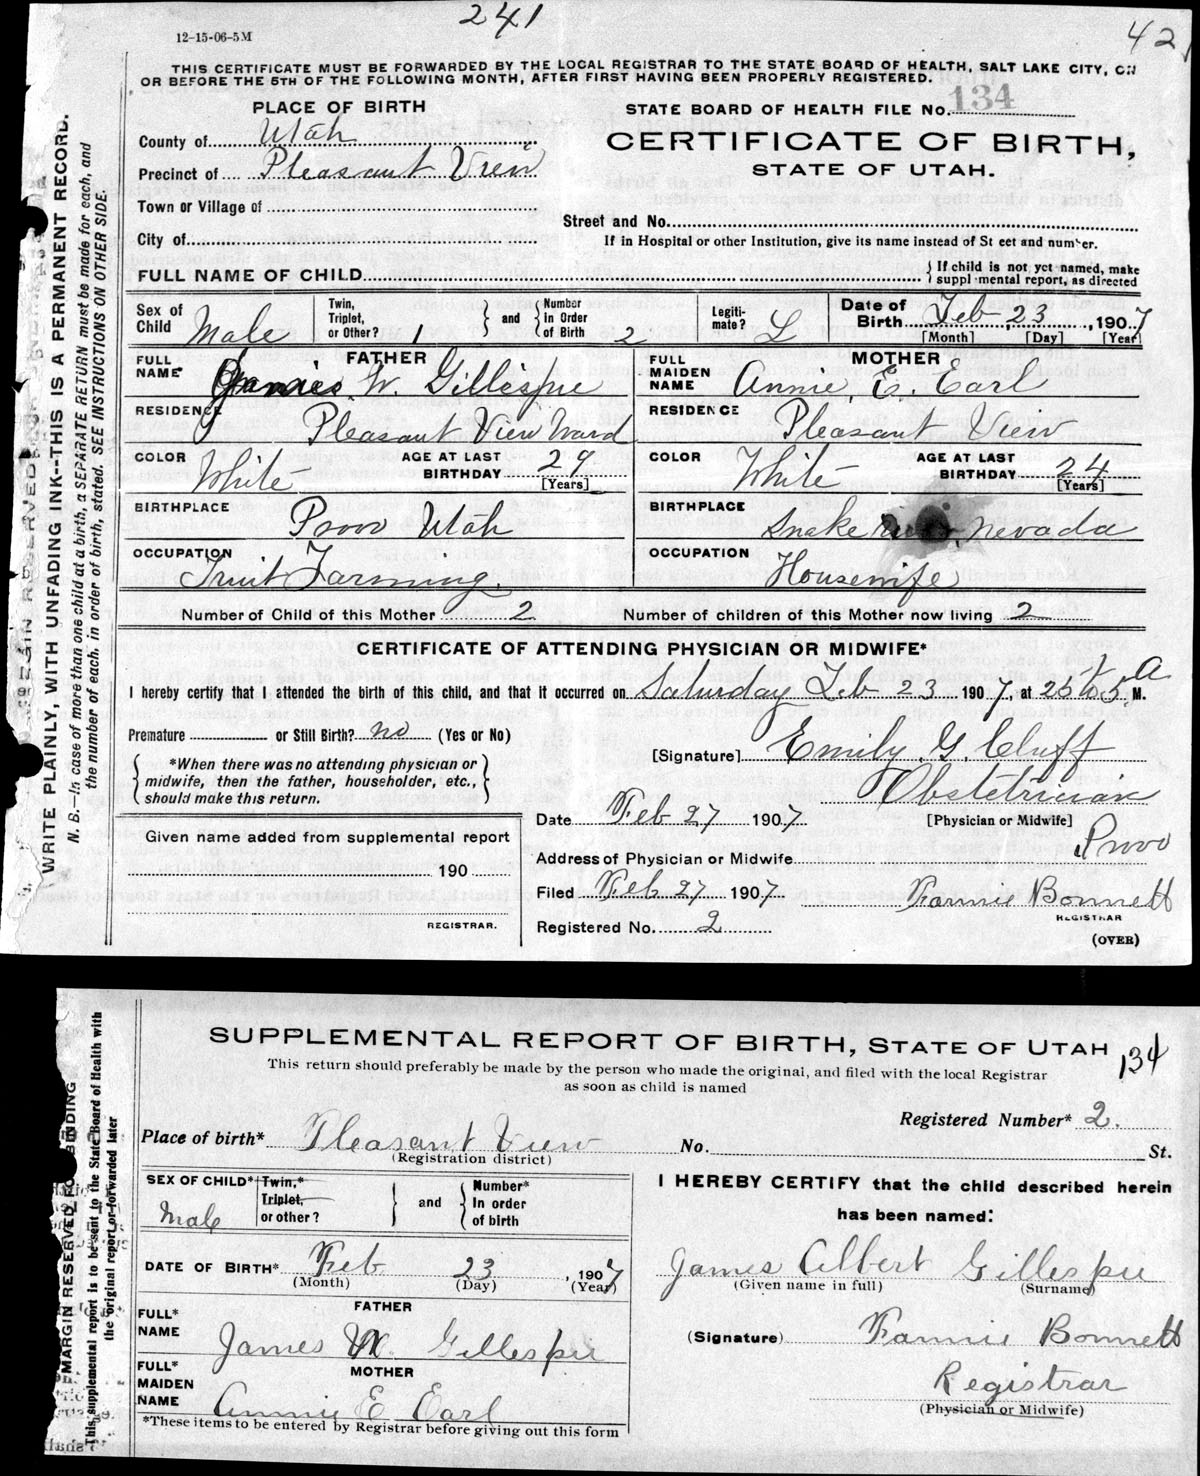 241
42
12-15-06-5M
THIS CERTIFICATE MUST BE FORWARDED BY THE LOCAL REGISTRAR TO THE STATE BOARD OF HEALTH, SALT LAKE CITY, ON
OR BEFORE THE 5TH OF THE FOLLOWING MONTH, AFTER FIRST HAVING BEEN PROPERLY REGISTERED.
WRITE PLAINLY, WITH UNFADING INK--THIS IS A PERMANENT RECORD.
N. B.—In case of more than one child at a birth, a SEPARATE RETURN must be made for each, and
the number of each, in order of birth, stated. SEE INSTRUCTIONS ON OTHER SIDE.
PLACE OF BIRTH
County of Utah
Precinct of Pleasant View
Town or Village of
City of
STATE BOARD OF HEALTH FILE No. 134
CERTIFICATE OF BIRTH,
STATE OF UTAH.
Street and No.
If in Hospital or other Institution, give its name instead of St eet and number.
FULL NAME OF CHILD
If child is not yet named, make
suppl mental report, as directed
Sex of Child Male
Twin, Triplet, or Other? 1
and
Number in Order of Birth 2
Legiti- mate? L
Date of Birth Feb 23, 1907
[Month] [Day] [Year]
FATHER
FULL NAME* James W. Gillespie
RESIDENCE Pleasant View Ward
COLOR White
AGE AT LAST BIRTHDAY 29
[Years]
BIRTHPLACE Provo Utah
OCCUPATION Fruit Farming.
MOTHER
FULL MAIDEN NAME Annie, E. Earl
RESIDENCE Pleasant View
COLOR White
AGE AT LAST BIRTHDAY 24
[Years]
BIRTHPLACE Snake Nevada
OCCUPATION Housewife
Number of Child of this Mother 2
Number of children of this Mother now living 2
CERTIFICATE OF ATTENDING PHYSICIAN OR MIDWIFE*
I hereby certify that I attended the birth of this child, and that it occurred on Saturday Feb 23 1907, at 25 to 5 A M.
Premature or Still Birth? no (Yes or No)
*When there was no attending physician or
midwife, then the father, householder, etc.,
should make this return.
[Signature] Emily G. Cluff
Obstetrician
[Physician or Midwife]
Date Feb 27 1907
Provo
Address of Physician or Midwife
Filed Feb 27 1907
Fannie Bonnett
REGISTRAR
Registered No. 2
(OVER)
Given name added from supplemental report
190
REGISTRAR.
MARGIN RESERVED FOR BINDING
This supplemental report is to be sent to the State Board of Health with
the original report or forwarded later
SUPPLEMENTAL REPORT OF BIRTH, STATE OF UTAH
134
This return should preferably be made by the person who made the original, and filed with the local Registrar
as soon as child is named
Registered Number* 2.
Place of birth* Pleasant View No. St.
(Registration district)
SEX OF CHILD* Male
Twin,* Triplet, or other?
and
Number* In order of birth
DATE OF BIRTH* Feb 23, 1907
(Month) (Day) (Year)
FATHER
FULL* NAME James W. Gillespie
MOTHER
FULL* MAIDEN NAME Annie E Earl
*These items to be entered by Registrar before giving out this form
I HEREBY CERTIFY that the child described herein
has been named:
James Albert Gillespie
(Given name in full) (Surname)
(Signature) Fannie Bonnett
Registrar
(Physician or Midwife)